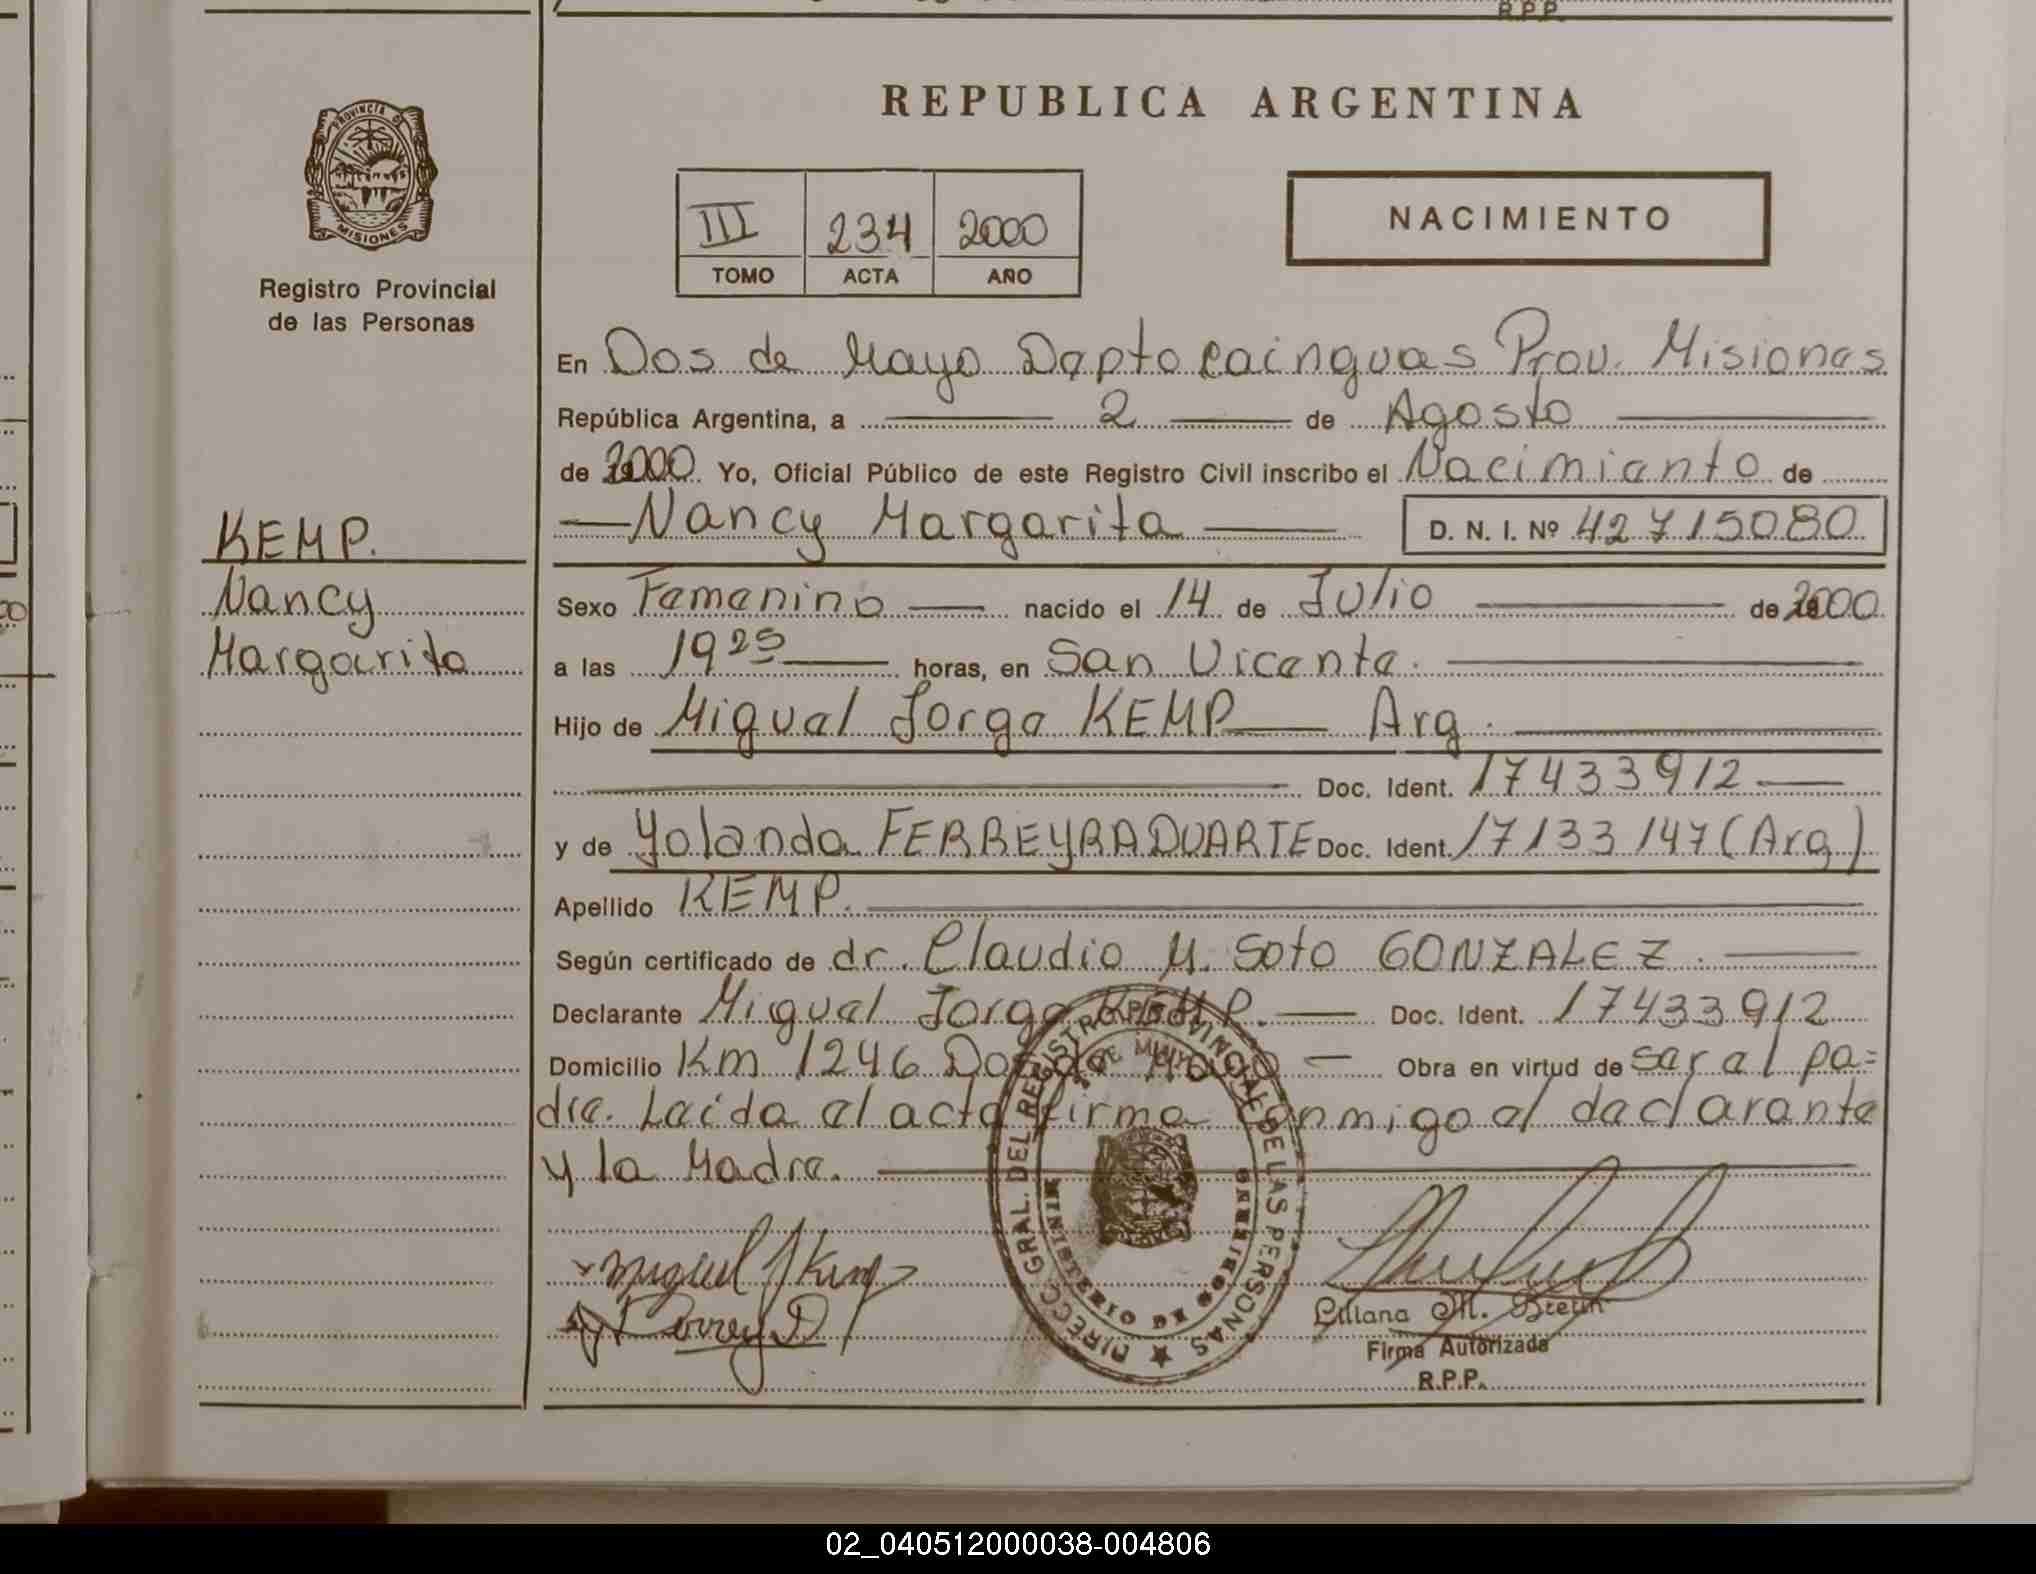 R.P.P.
REPUBLICA ARGENTINA
PROVINCIA DE
MISIONES
Registro Provincial
de las Personas
III 234 2000
TOMO ACTA AÑO
NACIMIENTO
En Dos de Mayo Depto Cainguas Prov. Misiones
República Argentina, a 2 de Agosto
de 2000. Yo, Oficial Público de este Registro Civil inscribo el Nacimiento de
Nancy Margarita D. N. I. Nº 42715080
KEMP.
Nancy
Margarita
Sexo Femenino nacido el 14 de Julio de 2000
a las 19 25 horas, en San Vicente.
Hijo de Miguel Jorge KEMP Arg.
Doc. Ident. 17433912
y de Yolanda FERREYRA DUARTE Doc. Ident. 17133147 (Arg)
Apellido KEMP.
Según certificado de dr. Claudio M. Soto GONZALEZ.
Declarante Miguel Jorge KEMP. Doc. Ident. 17433912
Domicilio Km 1246 Dos de Mayo Obra en virtud de ser el pa=
dre. Leida el acta firma conmigo el declarante
y la Madre.
DIRECC. GRAL. DEL REGISTRO PROVINCIAL DE LAS PERSONAS
MINISTERIO DE GOBIERNO
Miguel J Kemp
Liliana M.
Firma Autorizada
R.P.P.
02_040512000038-004806